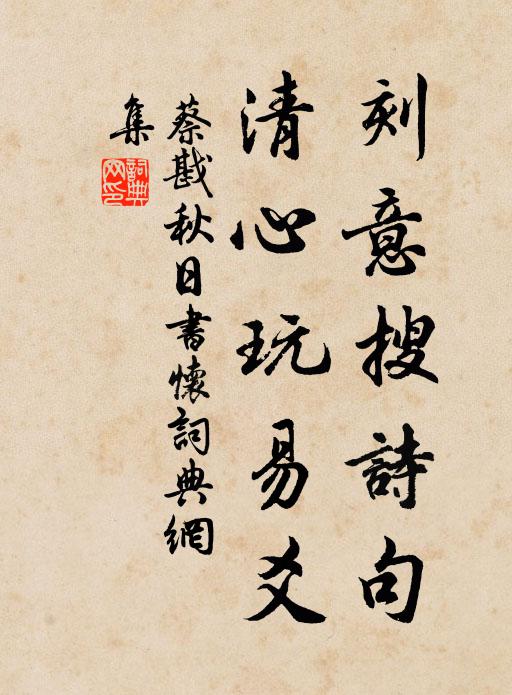 刻意搜詩句
清心玩易爻
蔡戡秋日書懷詞典網
集
詞典网印